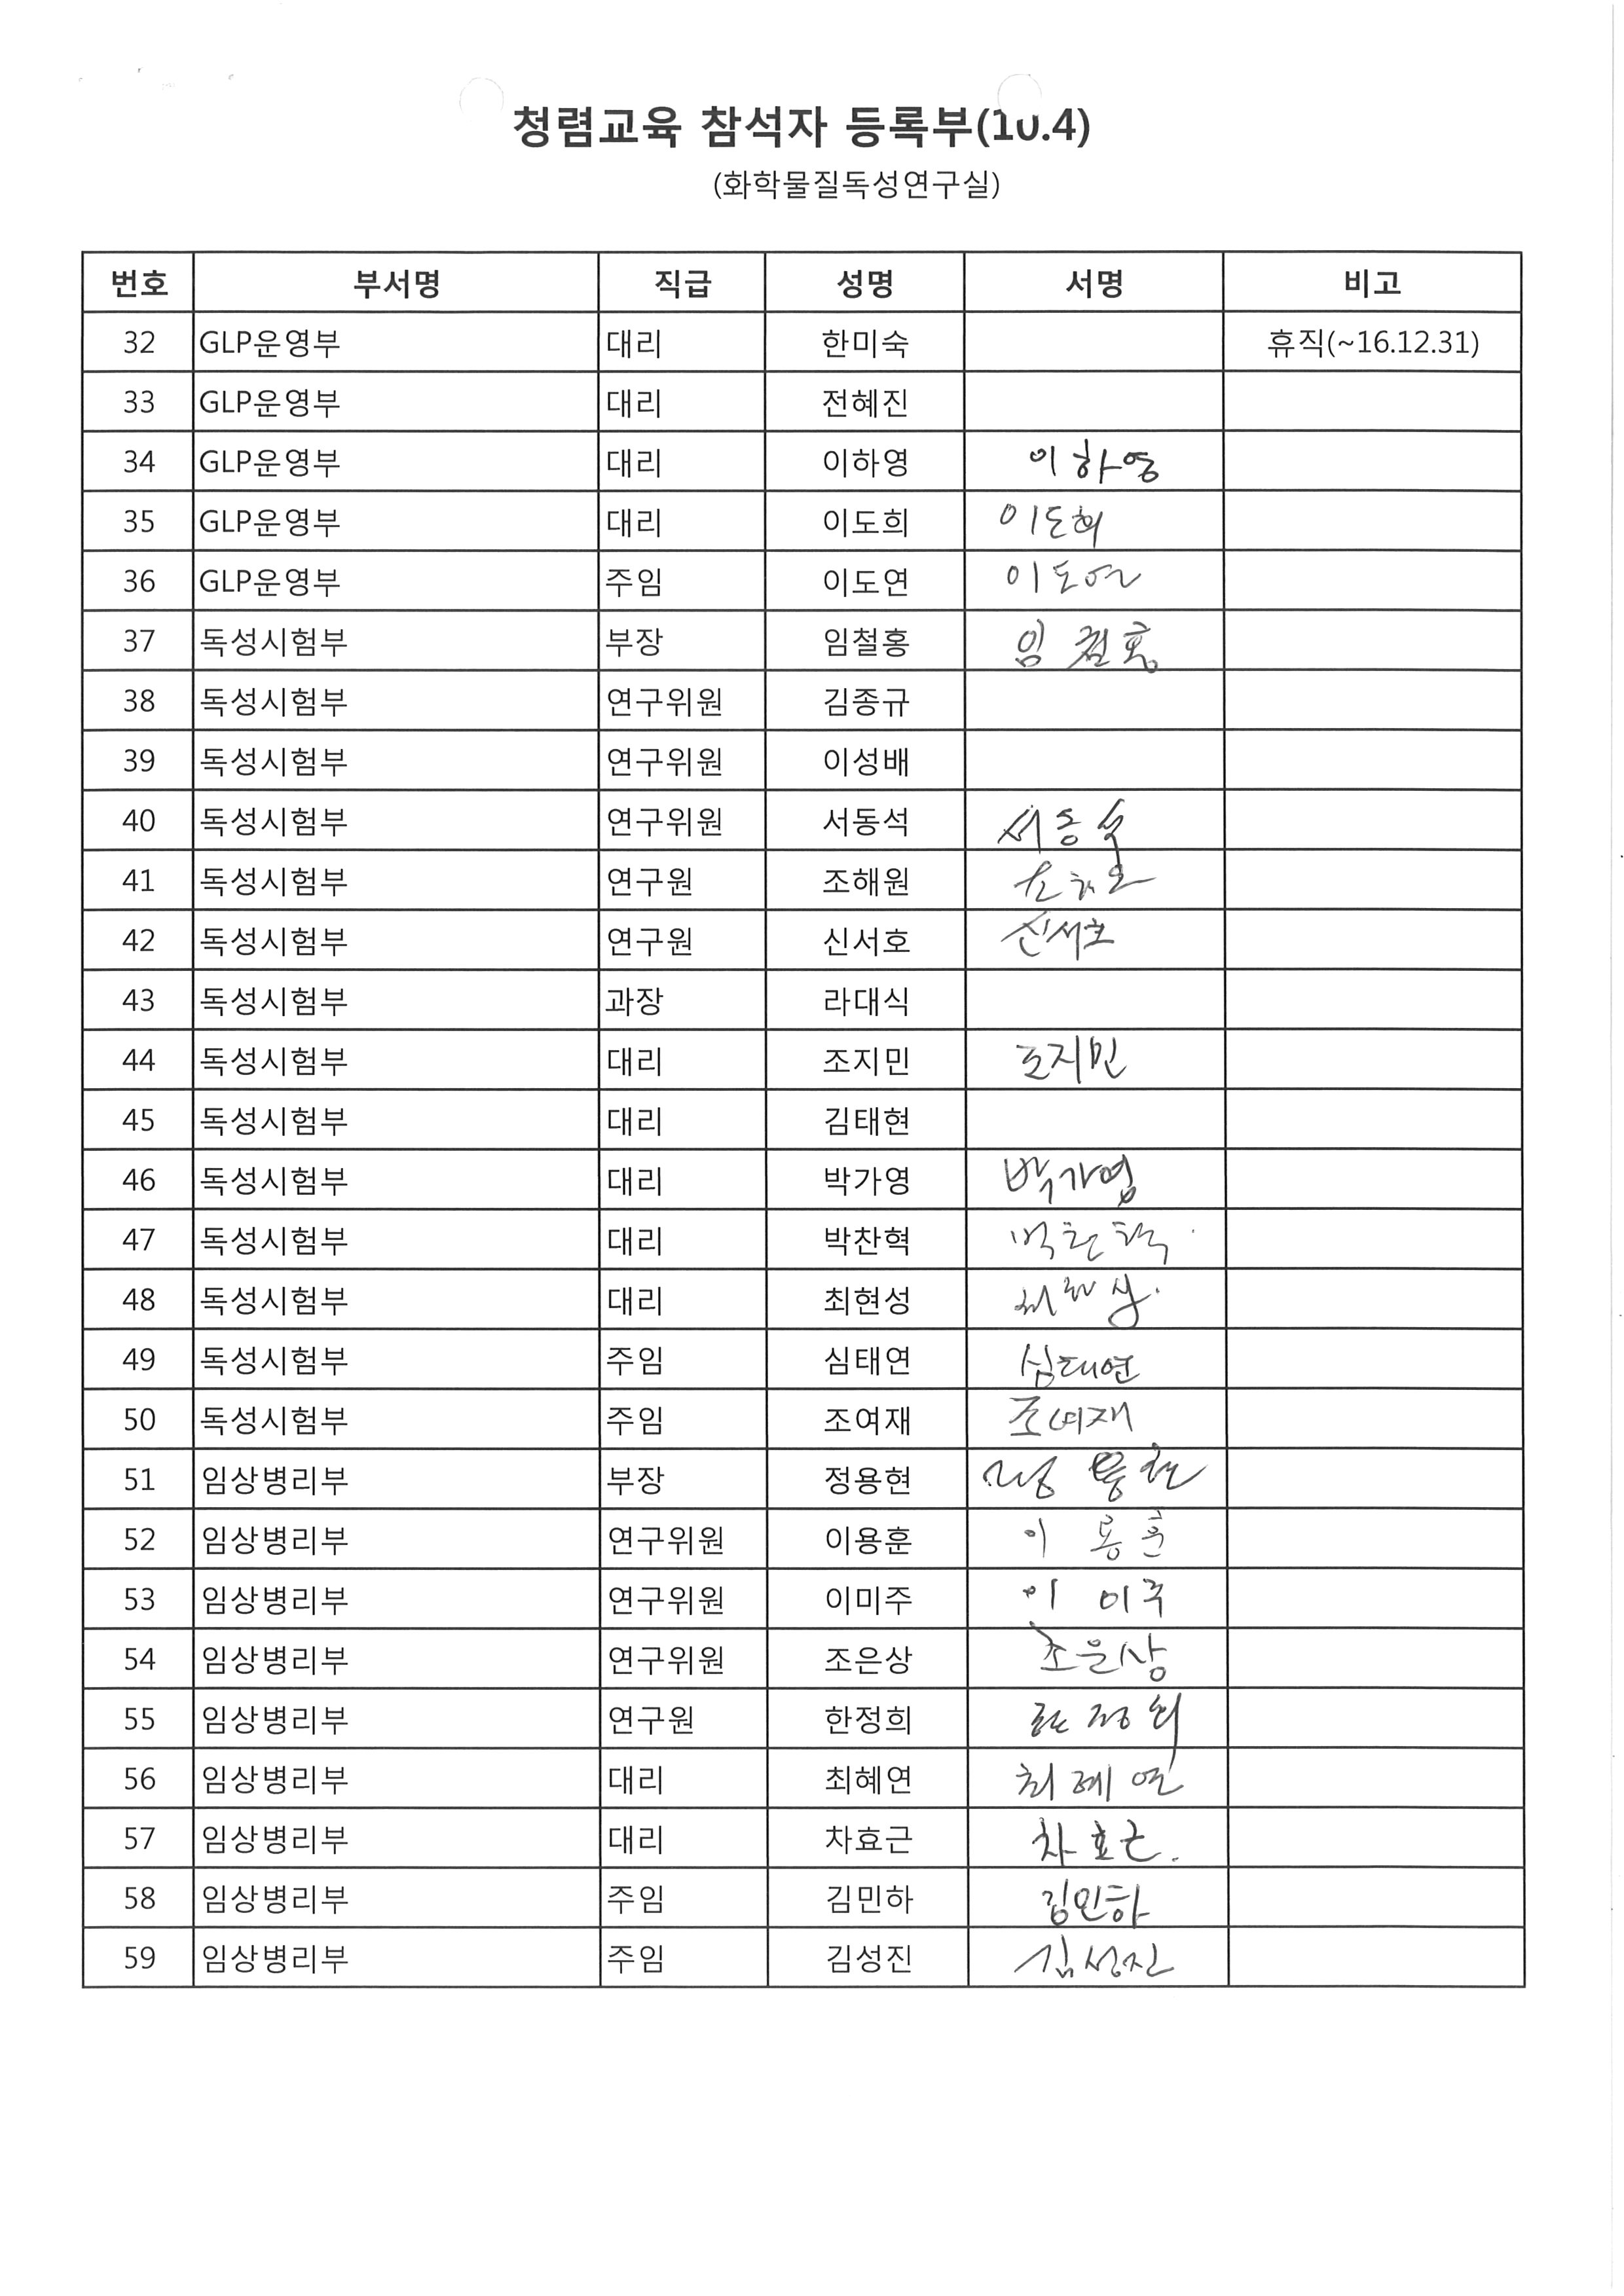 청렴교육 참석자 등록부(10.4)
(화학물질독성연구실)
번호 부서명 직급 성명 서명 비고
32 GLP운영부 대리 한미숙 휴직(~16.12.31)
33 GLP운영부 대리 전혜진
34 GLP운영부 대리 이하영 이하영
35 GLP운영부 대리 이도희 이도희
36 GLP운영부 주임 이도연 이도연
37 독성시험부 부장 임철홍 임철홍
38 독성시험부 연구위원 김종규
39 독성시험부 연구위원 이성배
40 독성시험부 연구위원 서동석 서동석
41 독성시험부 연구원 조해원
42 독성시험부 연구원 신서호 신서호
43 독성시험부 과장 라대식
44 독성시험부 대리 조지민 조지민
45 독성시험부 대리 김태현
46 독성시험부 대리 박가영 박가영
47 독성시험부 대리 박찬혁 박찬혁
48 독성시험부 대리 최현성
49 독성시험부 주임 심태연 심태연
50 독성시험부 주임 조여재 조여재
51 임상병리부 부장 정용현 정용현
52 임상병리부 연구위원 이용훈 이용훈
53 임상병리부 연구위원 이미주 이미주
54 임상병리부 연구위원 조은상 조은상
55 임상병리부 연구원 한정희 한정희
56 임상병리부 대리 최혜연 최혜연
57 임상병리부 대리 차효근 차효근.
58 임상병리부 주임 김민하 김민하
59 임상병리부 주임 김성진 김성진